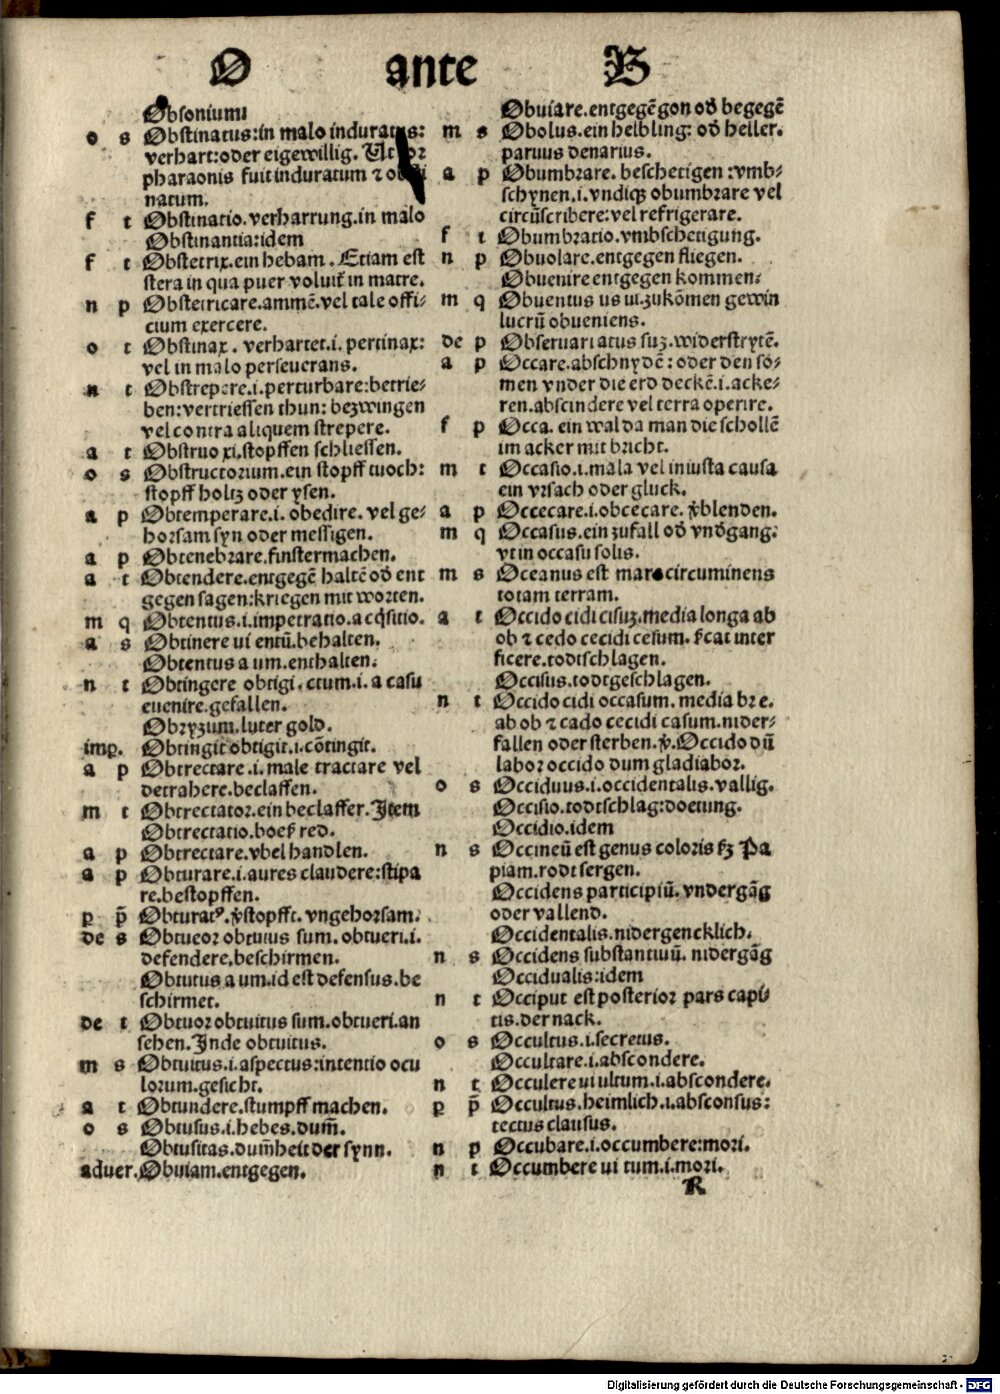 O ante B
Obsonium
o s Obstinatus:in malo induratus:
verhart:oder eigewillig. Ut cor
pharaonis fuit induratum ⁊ obsti
natum.
f t Obstinatio.verharrung.in malo
Obstinantia:idem
f t Obstetrix.ein hebam. Etiam est
stera in qua puer voluit᷑ in matre.
n p Obstetricare.ammē.vel tale offi⸗
cium exercere.
o t Obstinax. verhartet.i. pertinax:
vel in malo perseuerans.
n t Obstrepere.i.perturbare:betrie⸗
ben:vertriessen thun: bezwingen
vel contra aliquem strepere.
a t Obstruo xi.stopffen schliessen.
o s Obstructorium.ein stopff tuoch:
stopff holtz oder ysen.
a p Obtemperare.i. obedire. vel ge⸗
horsam syn oder messigen.
a p Obtenebrare.finstermachen.
a t Obtendere.entgegē haltē od̕ ent
gegen sagen:kriegen mit worten.
m q Obtentus.i.impetratio.acq̇sitio.
a s Obtinere ui entū.behalten.
Obtentus a um.enthalten.
n t Obtingere obtigi.ctum.i. a casu
euenire.gefallen.
Obryzum.luter gold.
imp. Obtingit obtigit.i.cōtingit.
a p Obtrectare.i. male tractare vel
detrahere.beclaffen.
m t Obtrectator.ein beclaffer. Item
Obtrectatio.boeß red.
a p Obtrectare.vbel handlen.
a p Obturare.i.aures claudere:stipa
re.bestopffen.
p p̄ Obturatꝰ.v̕stopfft. vngehorsam.
de s Obtueor obtutus sum. obtueri.i.
defendere.beschirmen.
Obtutus a um.id est defensus.be
schirmet.
de t Obtuor obtuitus sum.obtueri.an
sehen. Inde obtuitus.
m s Obtuitus.i.aspectus:intentio ocu
lorum.gesicht.
a t Obtundere.stumpff machen.
o s Obtusus.i.hebes.dum̄.
Obtusitas.dum̄heit der synn.
aduer. Obuiam.entgegen.
Obuiare.entgegē gon od̕ begegē
m s Obolus.ein helbling: od̕ heller.
paruus denarius.
a p Obumbrare. beschetigen:vmb⸗
schynen.i.vndiqꝫ obumbrare vel
circūscribere:vel refrigerare.
f t Obumbratio.vmbschetigung.
n p Obuolare.entgegen fliegen.
Obuenire entgegen kommen.
m q Obuentus us ui.zukōmen gewin
lucrū obueniens.
de p Obseruari atus suꝫ.widerstrytē.
a p Occare.abschnydē:oder den so⸗
men vnder die erd deckē.i.acke⸗
ren.abscindere vel terra operire.
f p Occa. ein wal da man die schollē
im acker mit bricht.
m t Occasio.i.mala vel iniusta causa
ein vrsach oder gluck.
a p Occecare.i.obcecare. v̕blenden.
m q Occasus.ein zufall od̕ vnd̕gang:
vt in occasu solis.
m s Oceanus est mare circuminens
totam terram.
a t Occido cidi cisuꝫ.media longa ab
ob ⁊ cedo cecidi cesum. s̕cat inter
ficere.todtschlagen.
Occisus.todtgeschlagen.
n t Occido cidi occasum. media bre.
ab ob ⁊ cado cecidi casum.nider⸗
fallen oder sterben.v̕.Occido dū
labor occido dum gladiabor.
o s Occiduus.i.occidentalis.vallig.
Occisio.todtschlag:doetung.
Occidio.idem
n s Occineū est genus coloris sꝫ Pa
piam.rodt sergen.
Occidens participiū. vndergāg
oder vallend.
Occidentalis.nidergencklich.
n s Occidens substantiuū. nidergāg
Occidualis:idem
n t Occiput est posterior pars capi⸗
tis.der nack.
o s Occultus.i.secretus.
Occultare.i.abscondere.
n t Occulere ui ultum.i.abscondere.
p p̄ Occultus.heimlich.i.absconsus:
tectus clausus.
n p Occubare.i.occumbere:mori.
n t Occumbere ui tum.i.mori.
R
Digitalisierung gefördert durch die Deutsche Forschungsgemeinschaft - DFG